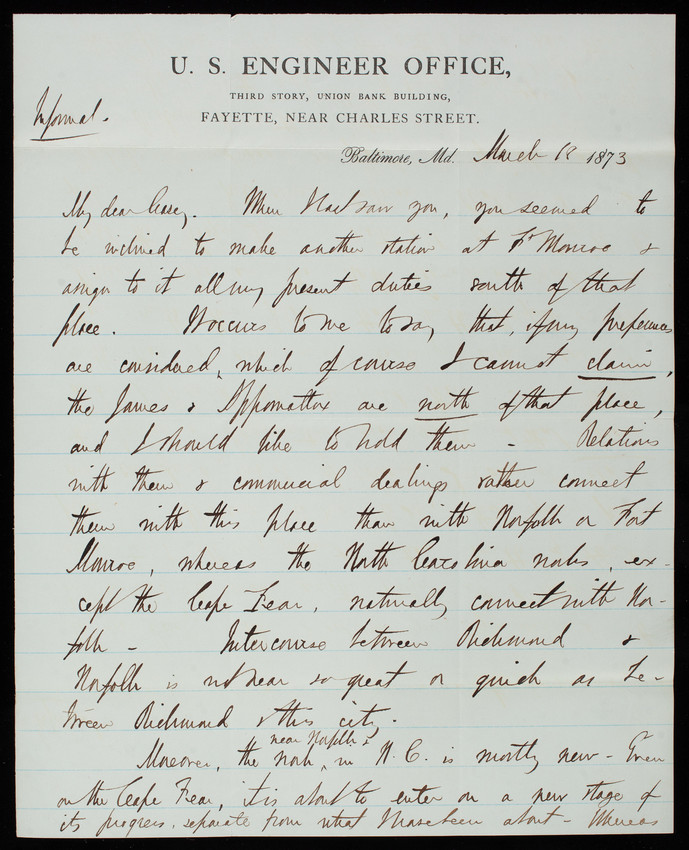 U. S. ENGINEER OFFICE,
THIRD STORY, UNION BANK BUILDING,
FAYETTE, NEAR CHARLES STREET.
Informal.
Baltimore, Md. March 18 1873
My dear Casey. When I last saw you, you seemed to
be inclined to make another station at Ft Monroe &
assign to it all my present duties south of that
place. It occurs to me to say that, if my preferences
are considered, which of course I cannot claim,
the James & Appomattox are north of that place,
and I should like to hold them - Relations
with them & commercial dealings rather connect
them with this place than with Norfolk or Fort
Monroe, whereas the North Carolina works, ex-
cept the Cape Fear, naturally connect with Nor-
folk - Intercourse between Richmond &
Norfolk is not near so great or quick as be-
tween Richmond & this city.
Moreover, the work near Norfolk & in N. C. is mostly new - Even
on the Cape Fear, it is about to enter on a new stage of
its progress, separate from what I have been about - Whereas